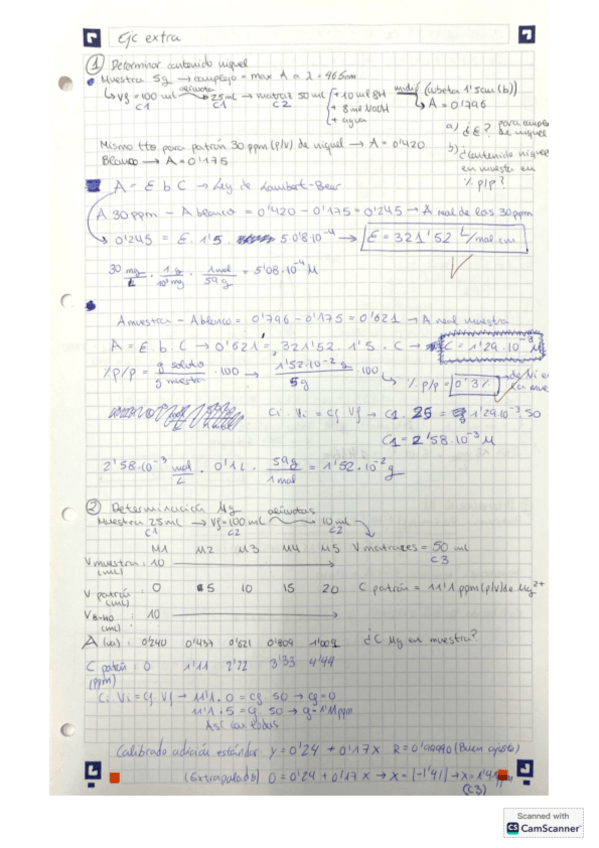 Ejc extra
① Determinar contenido niquel
Muestra 5g → complejo - max A a λ = 465nm
↳ Vf = 100 ml alícuota 25 ml → matraz 50 ml + 10 ml
C1 C1 C2 + 8 ml NaOH
+ agua
medir (cubeta 1'5cm (b))
↳ A = 0'796
a) ¿E? para
de niquel
b) ¿contenido niquel
en muestra en
% p/p?
Mismo tto para patrón 30 ppm (p/v) de niquel → A = 0'420
Blanco → A = 0'175
A = E b C → Ley de Lambert-Beer
A 30ppm - A blanco = 0'420 - 0'175 = 0'245 → A real de las 30ppm
0'245 = E · 1'5 · 5'08·10⁻⁴ → E = 321'52 L/mol·cm
30 mg/L · 1 g/10³ mg · 1 mol/59 g = 5'08·10⁻⁴ M
A muestra - A blanco = 0'796 - 0'175 = 0'621 → A real muestra
A = E · b · C → 0'621 = 321'52 · 1'5 · C → C = 1'29·10⁻³ M
% p/p = g soluto/g muestra · 100 → 1'52·10⁻² g/5g · 100 ↳ % p/p = 0'3% de Ni en
Ci · Vi = Cf Vf → C1 · 25 = 1'29·10⁻³ · 50
C1 = 2'58·10⁻³ M
2'58·10⁻³ mol/L · 0'1L · 59g/1 mol = 1'52·10⁻² g
② Determinación Mg
Muestra 25 ml → Vf = 100 ml alícuotas 10 ml
C1 C2 C2
M1 M2 M3 M4 M5 V matraces = 50 ml
C3
V muestra : 10 →
(mL)
V patrón : 0 5 10 15 20 C patrón = 11'1 ppm (p/v) de Mg²⁺
(mL)
: 10 →
(mL)
A (ua) : 0'240 0'437 0'621 0'809 1'009 ¿C Mg en muestra?
C patrón : 0 1'11 2'22 3'33 4'44
(ppm)
Ci · Vi = Cf Vf → 11'1 · 0 = Cf · 50 → Cf = 0
11'1 · 5 = Cf · 50 → Cf = 1'11 ppm
Así con todas
Calibrado adición estándar y = 0'24 + 0'17x R = 0'99990 (Buen ajuste)
(Extrapolado) 0 = 0'24 + 0'17x → x = |-1'41| → x = 1'41 ppm
(C3)
Scanned with
CS CamScanner